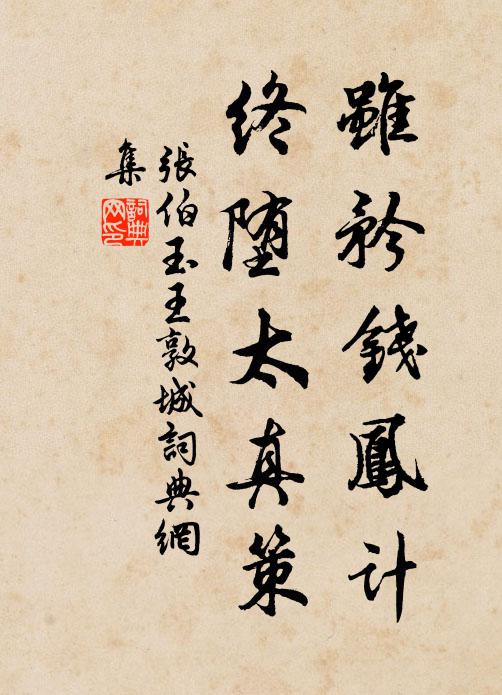 雖矜錢鳳計
終墮太真策
張伯玉王敦城詞典網
集
詞典
网印